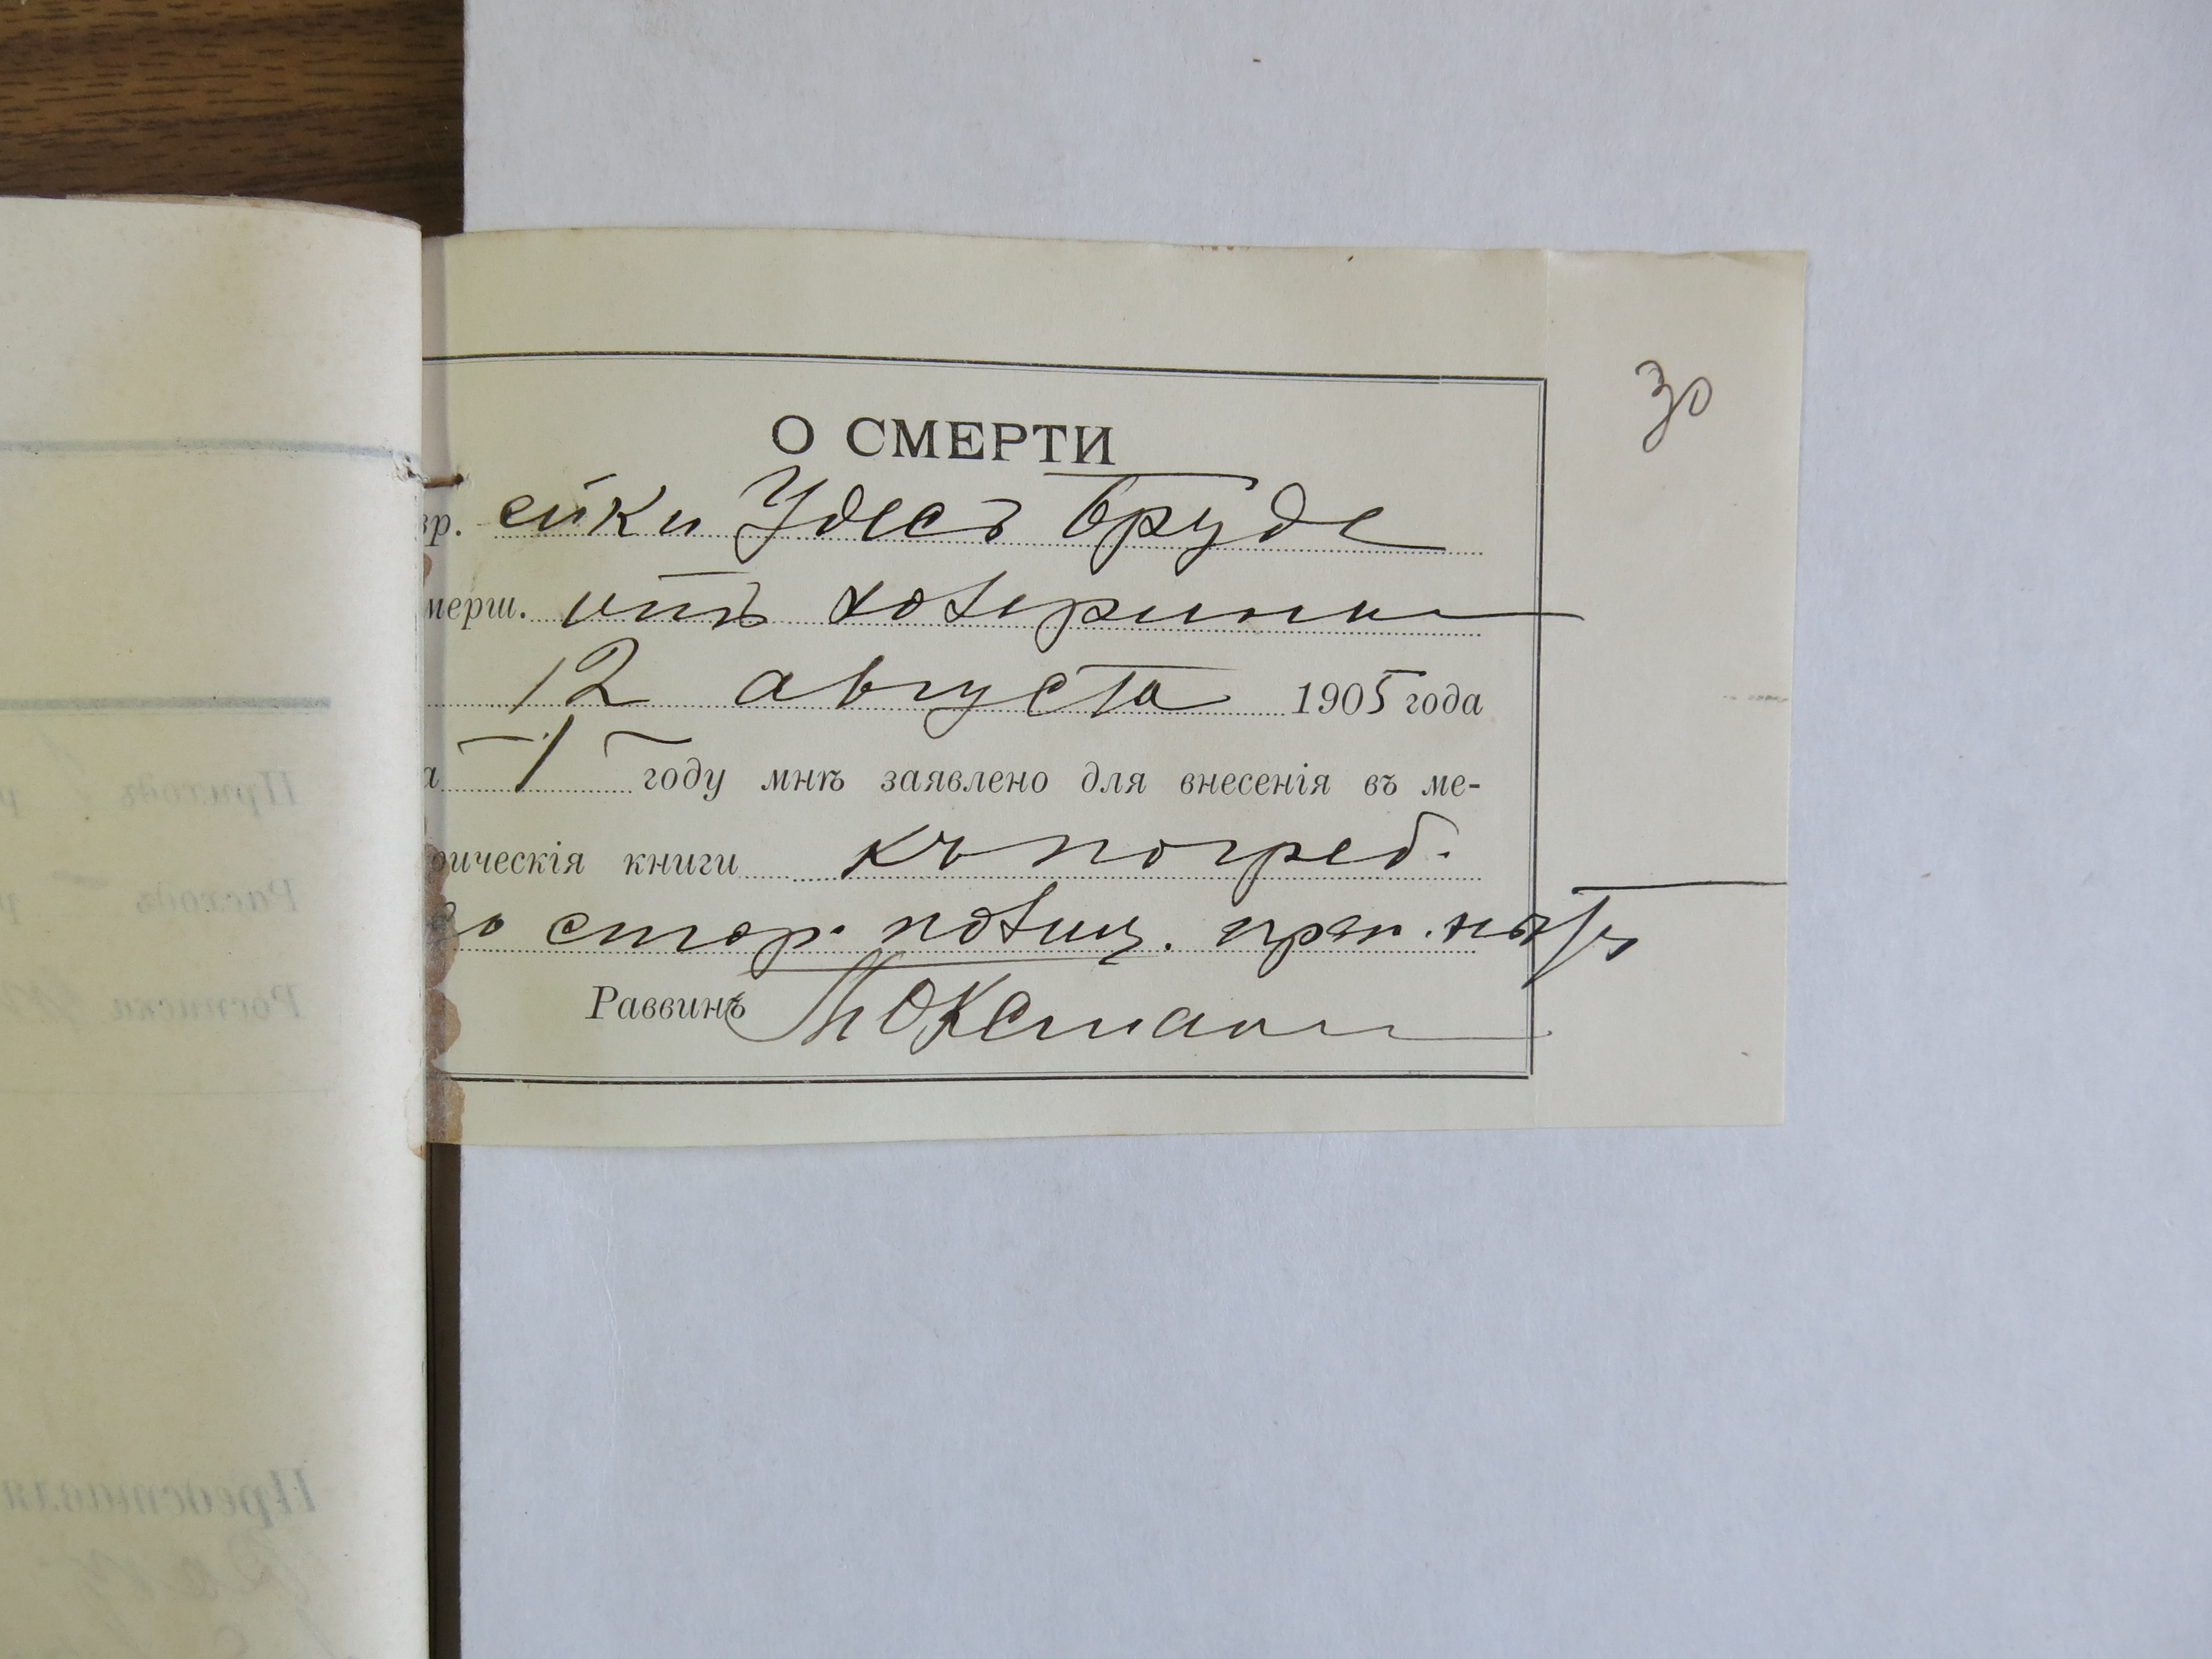 30
О СМЕРТИ
вр. ейки Удесъ Бруде
мерш. отъ холерины
12 августа 1905 года
а 1 году мнѣ заявлено для внесенія въ ме-
рическія книги къ погреб.
со стор. полиц. преп. нѣтъ
Раввинъ М Оксман
Приходъ
Расходъ
Росписки
Представля